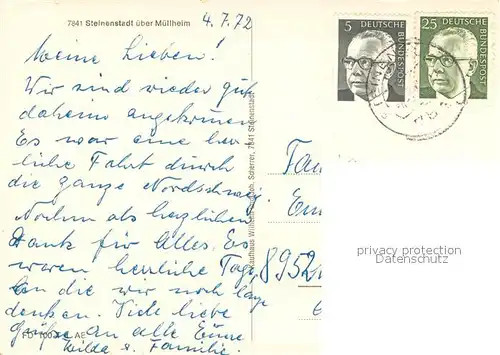 7841 Steinenstadt über Müllheim
4.7.72
Meine Lieben!
Wir sind wieder gut
daheim angekommen
Es war eine herr
liche Fahrt durch
die ganze Nordschweiz.
Nochm als herzlichen
Dank für Alles. Es
waren herrliche Tage,
an die wir noch lange
denken. Viele liebe
Grüße an alle Eure
Hilda u. Familie.
5 DEUTSCHE BUNDESPOST
25 DEUTSCHE BUNDESPOST
Kaufhaus Scherrer, 7841 Steinenstadt
Fam
8952
privacy protection
Datenschutz
AE